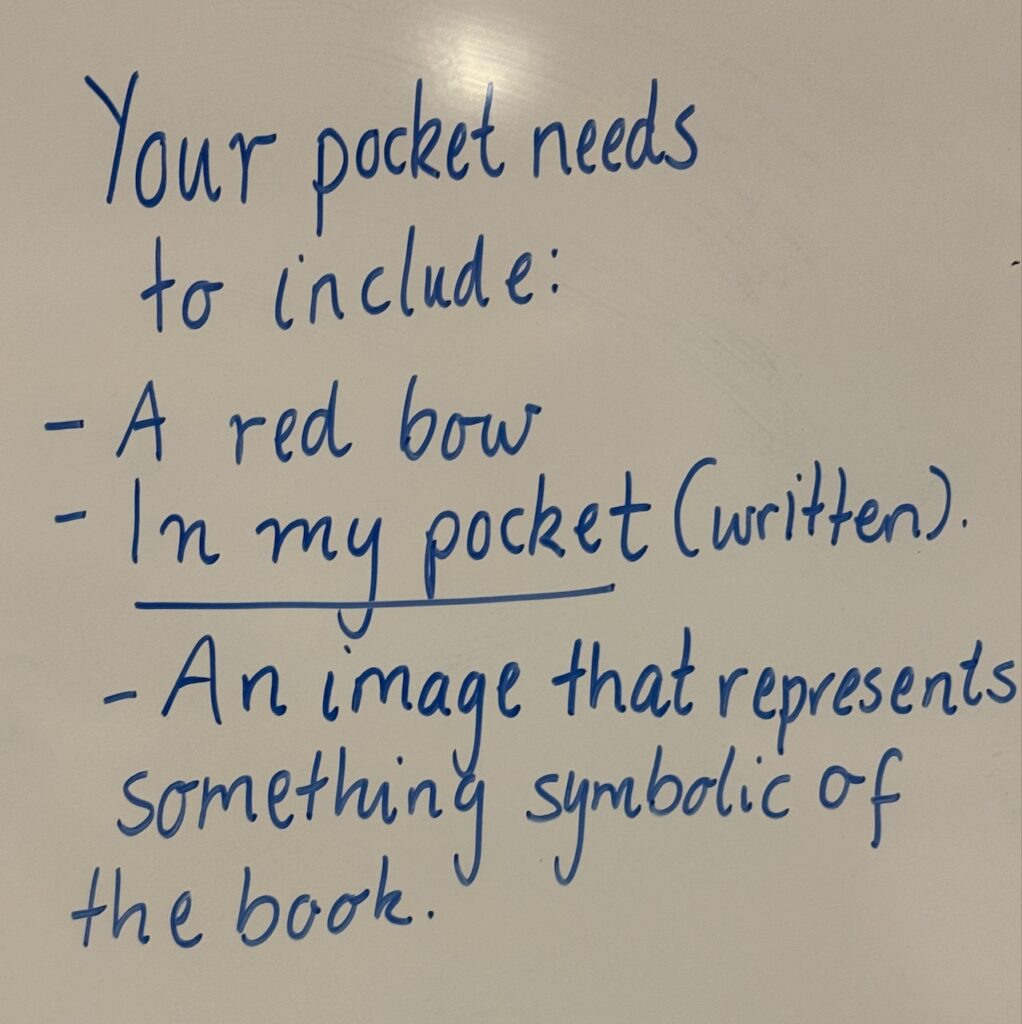 Your pocket needs
to include:
- A red bow
- In my pocket (written).
- An image that represents
something symbolic of
the book.